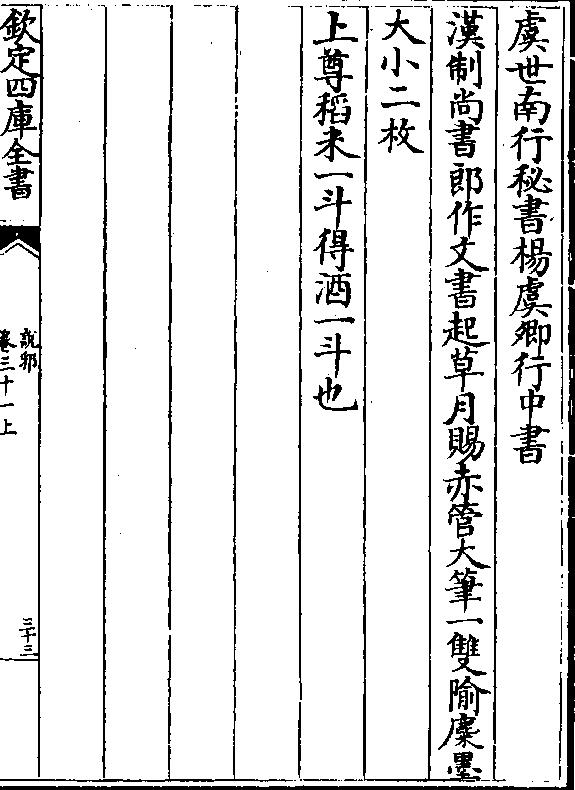 虞世南行秘書楊虞卿行中書
漢制尚書郎作文書起草月賜赤管大筆一雙隃麋墨
大小二枚
上尊稻米一斗得酒一斗也
欽定四庫全書
說郛
卷三十一上
三十三